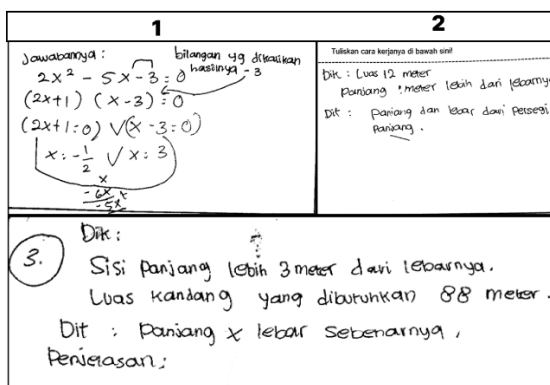 1
2
Jawabannya :
bilangan yg dikalikan
hasilnya -3
2x² - 5x - 3 = 0
(2x+1) (x-3) = 0
(2x+1=0) ∨ (x-3=0)
x = -1/2 ∨ x = 3
x
-6x x
-5x
Tuliskan cara kerjanya di bawah sini!
Dik : Luas 12 meter
Panjang 1 meter lebih dari lebarny
Dit : Panjang dan lebar dari Persegi
Panjang .
3.
Dik :
Sisi Panjang lebih 3 meter dari lebarnya.
Luas kandang yang dibutuhkan 88 meter.
Dit : Panjang x lebar sebenarnya,
Penjelasan :